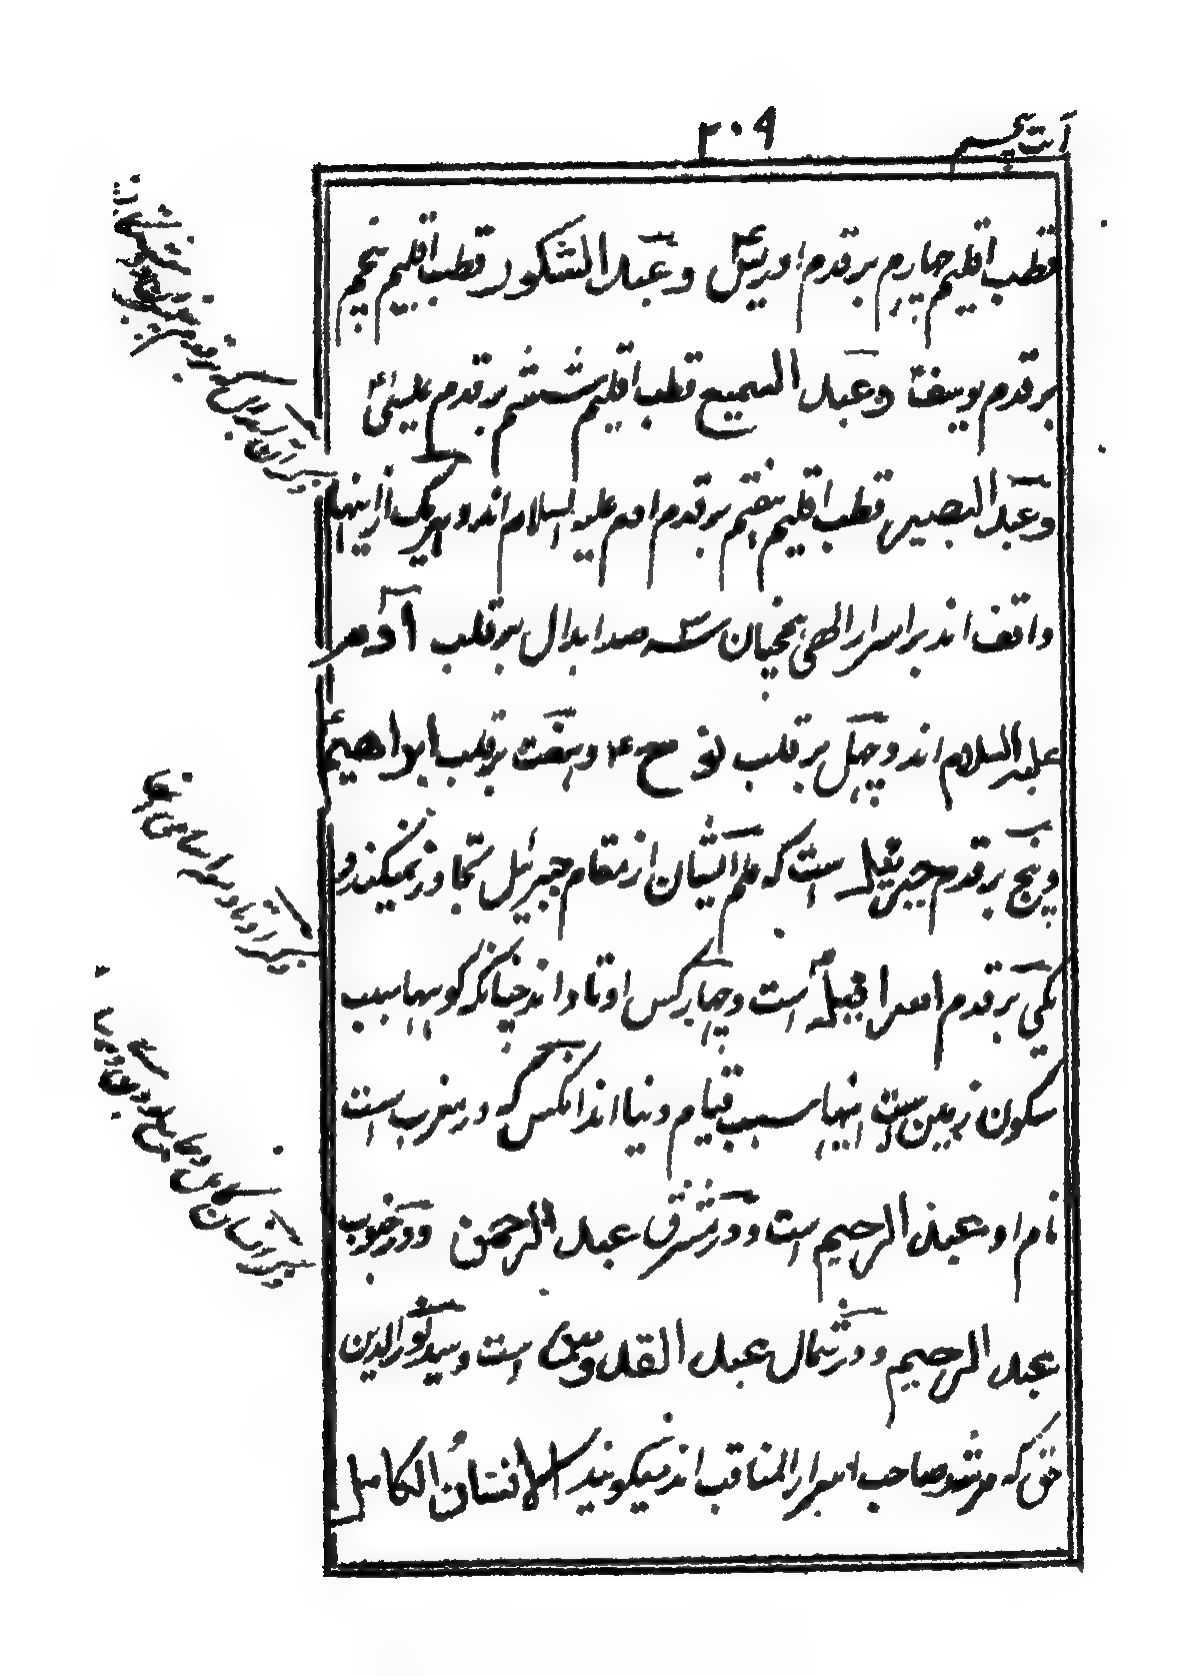 ۲۰۹
قطب اقلیم چہارم بر قدم ادریسؑ و عبد الشکور قطب اقلیم پنجم
بر قدم یوسفؑ و عبد السمیع قطب اقلیم ششم بر قدم عیسیٰؑ
و عبد البصیر قطب اقلیم ہفتم بر قدم ادم علیہ السلام اند و ہریک ازینہا
واقف اند بر اسرار الٰهی ہمچنان سہ صد ابدال بر قلب آدم
علیہ السلام اند و چہل بر قلب نوحؑ و ہفت بر قلب ابراهیمؑ
و پنج بر قدم جبرئیل است کہ علم ایشان از مقام جبرئیل تجاوز نمیکند و
یکی بر قدم اسرافیل است و چہار کس اوتاد اند چنانکہ کوہہا سبب
سکون زمین ست اینہا سبب قیام دنیا اند انکس کہ در مغرب است
نام او عبد الرحیم است و در مشرق عبد الرحمن و در جنوب
عبد الرحیم و در شمال عبد القدوس است و سید نور الدین
حق کہ مرشد صاحب اسرار المناقب اند میگویند کہ الانسان الکامل
ذکر اوتاد و اسامی انها
ذکر انسان کامل و